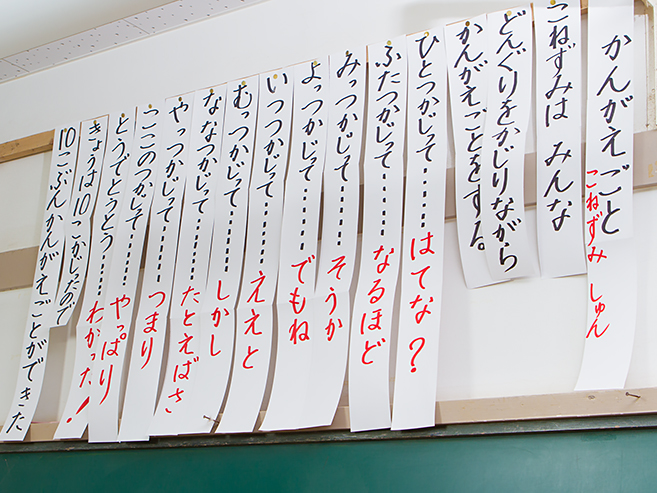 かんがえごと
こねずみ しゅん
こねずみは みんな
どんぐりをかじりながら
かんがえごとをする
ひとつかじって……はてな？
ふたつかじって……なるほど
みっつかじって……そうか
よっつかじって……でもね
いつつかじって……ええと
むっつかじって……しかし
ななつかじって……たとえばさ
やっつかじって……つまり
ここのつかじって……やっぱり
とうでとうとう……わかった！
きょうは10こかじったので
10こぶんかんがえごとができた